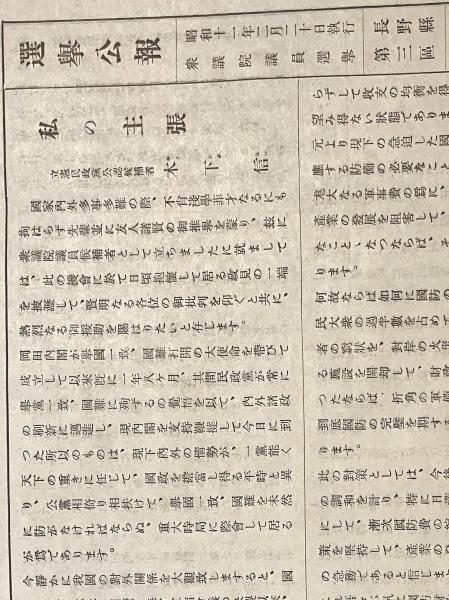 選擧公報
昭和十一年二月二十日執行
衆議院議員選擧
長野縣
第三區
私の主張
立憲民政黨公認候補者 木下信
國家內外多事多難の際、不肖淺學菲才なるにも
拘はらず先輩並に友人諸賢の御推擧を蒙り、玆に
衆議院議員候補者として立ちましたに就まして
は、此の機會に於て日頃抱懷して居る政見の一端
を披瀝して、賢明なる各位の御批判を仰ぐと共に、
熱烈なる御援助を賜はりたいと存じます。
岡田內閣が擧國一致、國難打開の大使命を帶びて
成立して以來玆に一年八ケ月、其間民政黨が常に
擧黨一致、國難に殉ずるの覺悟を以て、內外諸政
の刷新に邁進し、現內閣を支持鞭撻して今日に到
つた所以のものは、現下內外の情勢が、一黨能く
天下の重きに任じて、國政を擔當し得る平時と異
り、公黨相倚り相扶けて、擧國一致、國難を未然
に防がなければならぬ、重大時局に際會して居る
が爲であります。
今靜かに我國の對外關係を大觀致しますると、國
らずして收支の均衡を得
望み得ない狀態でありま
元より現下の急迫した國
應する防備の必要なこと
尨大なる軍事費の爲に、
產業の發展を阻害して、
なことゝなつならば、そ
ります。
何故ならば如何に國防の
民大衆の過半數を占めて
者の窮狀を、對岸の火災
る施設を閑却して、財政
つたならば、折角の軍備
到底國防の完璧を期する
ります。
此の對策としては、今後
の調和を計り、特に日滿
にして、漸次國防費の
策を堅持して、產業の發
の急務であると信じま